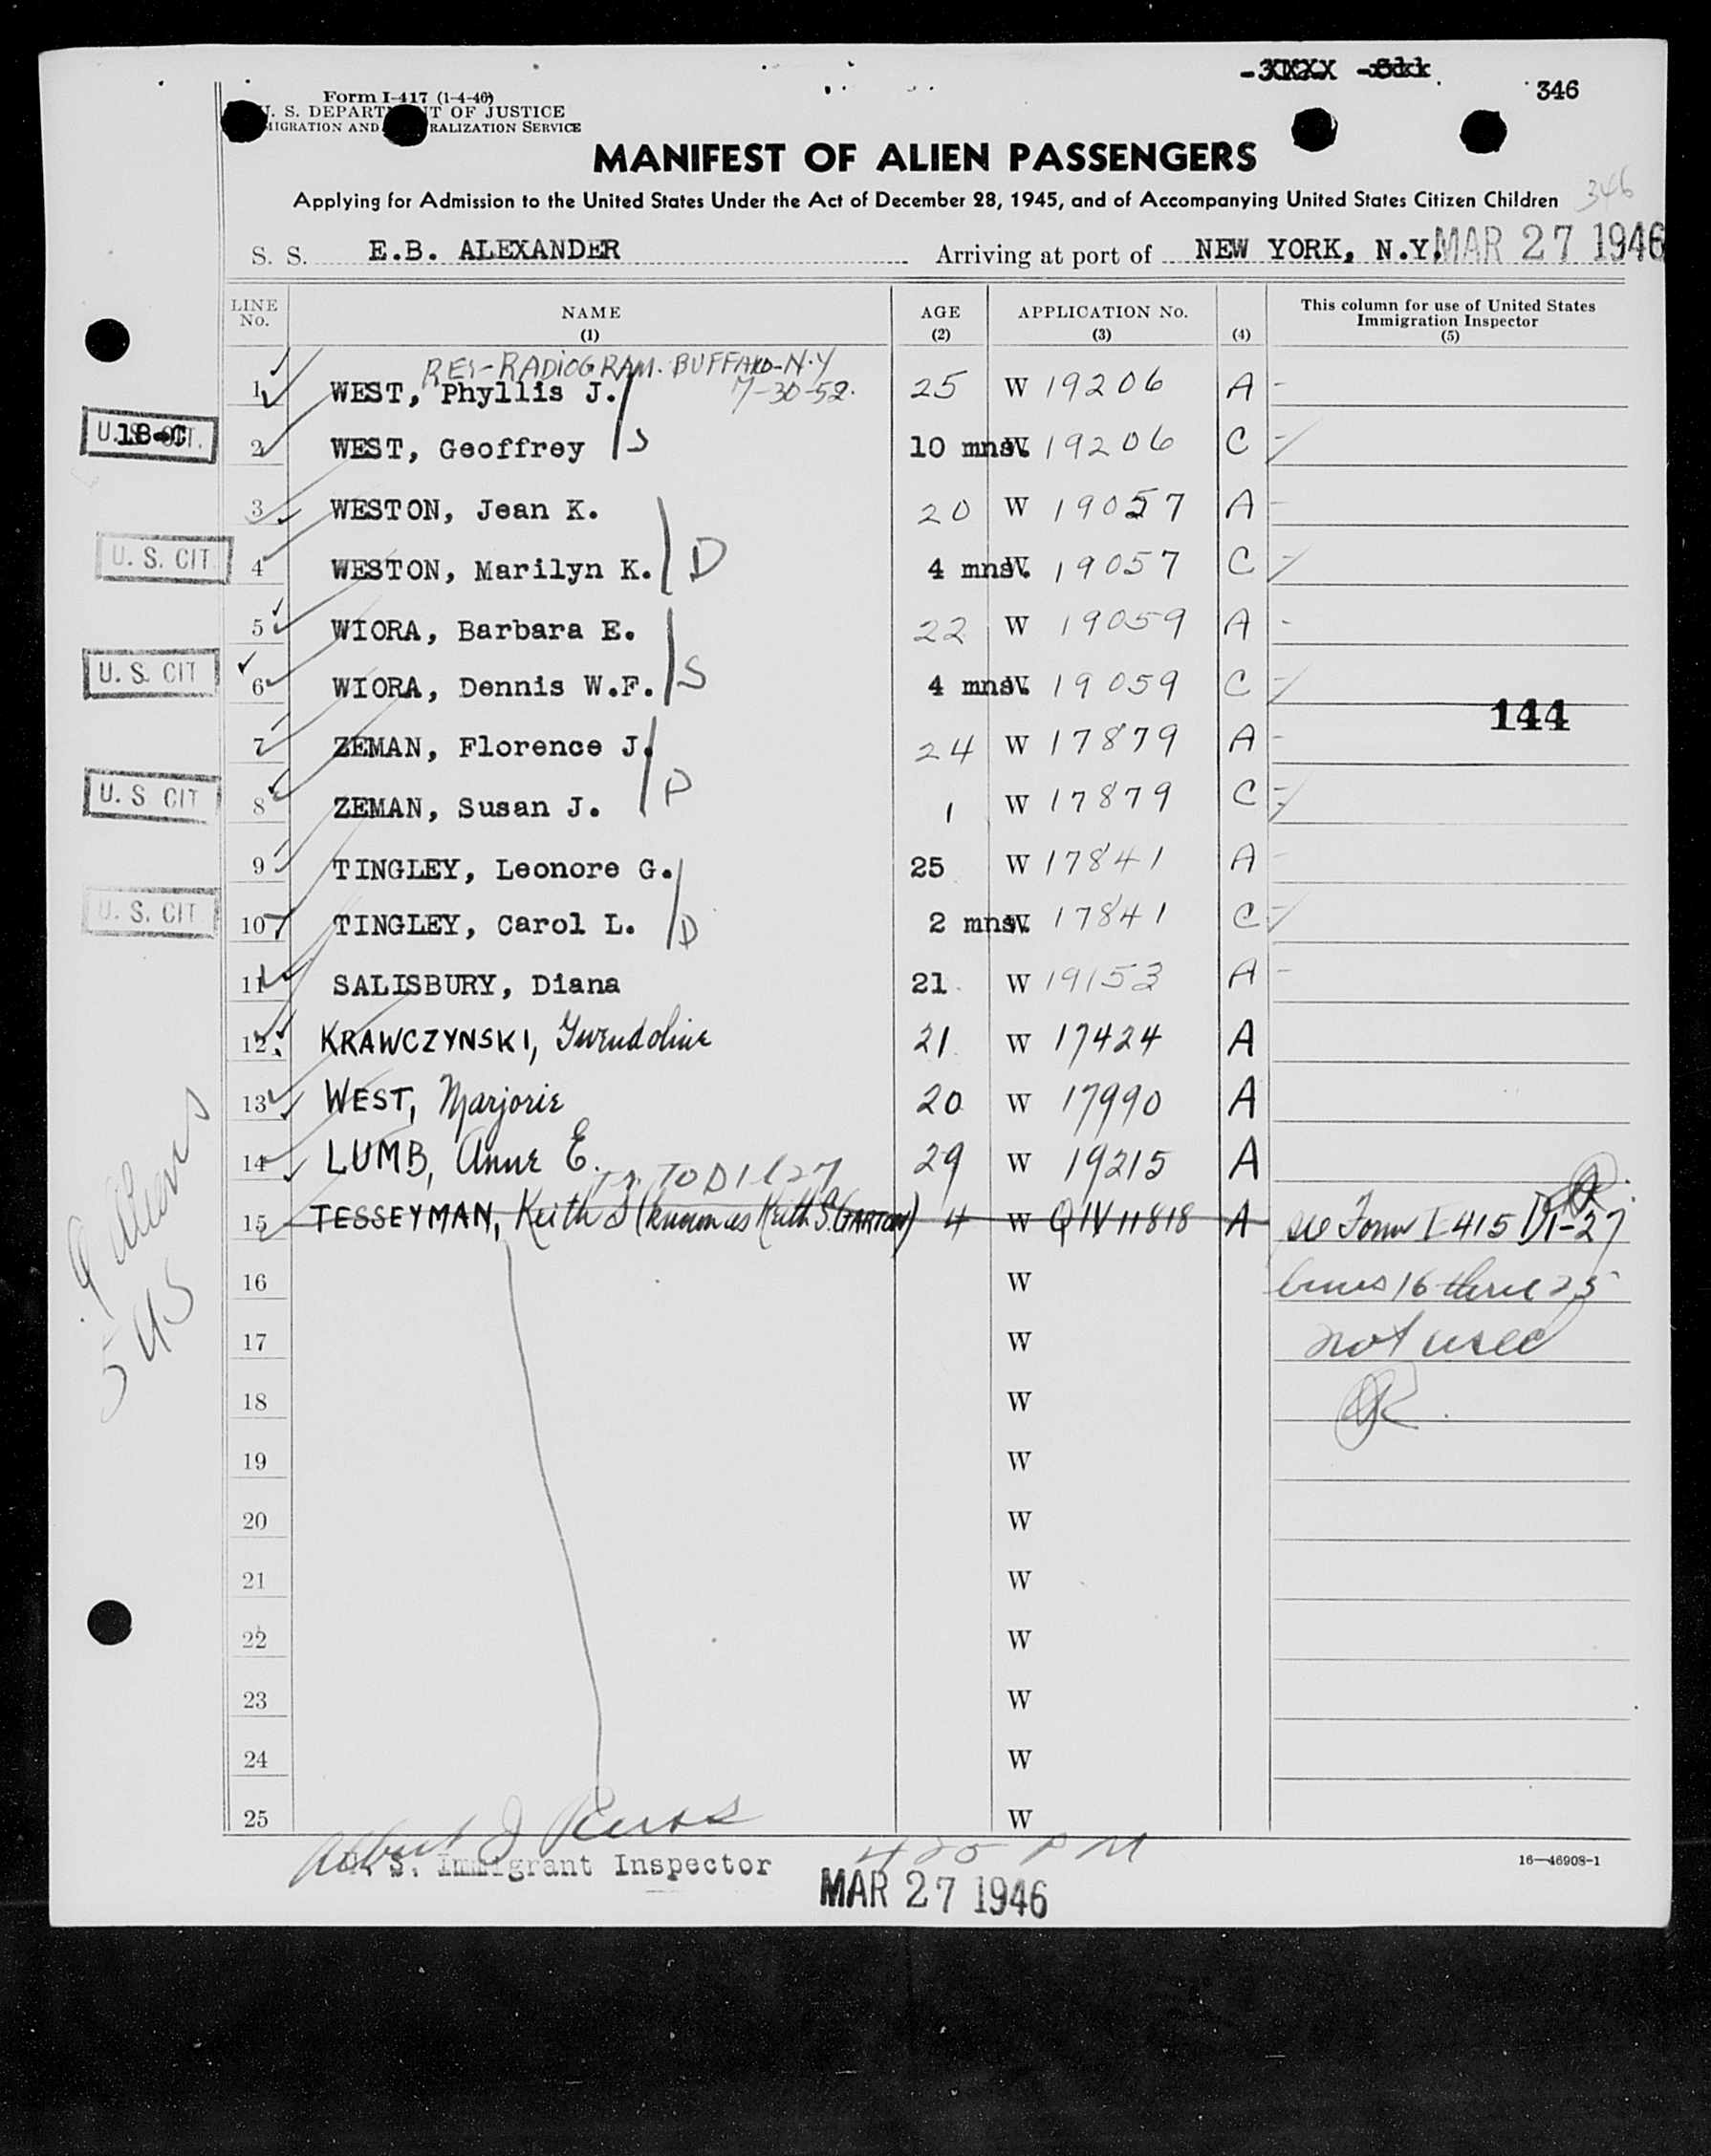 346
Form I-417 (1-4-46)
U. S. DEPARTMENT OF JUSTICE
IMMIGRATION AND NATURALIZATION SERVICE
MANIFEST OF ALIEN PASSENGERS
Applying for Admission to the United States Under the Act of December 28, 1945, and of Accompanying United States Citizen Children
346
S. S. E.B. ALEXANDER Arriving at port of NEW YORK, N.Y. MAR 27 1946
LINE No. NAME (1) AGE (2) APPLICATION No. (3) (4) This column for use of United States Immigration Inspector (5)
RADIOGRAM. BUFFALO-N.Y
7-30-52.
1 WEST, Phyllis J. 25 W 19206 A -
U.S. CIT. 2 WEST, Geoffrey S 10 mns. W 19206 C -
3 WESTON, Jean K. 20 W 19057 A -
U. S. CIT 4 WESTON, Marilyn K. D 4 mns. W 19057 C -
5 WIORA, Barbara E. 22 W 19059 A -
U. S. CIT 6 WIORA, Dennis W.F. S 4 mns. W 19059 C -
144
7 ZEMAN, Florence J. 24 W 17879 A -
U. S CIT 8 ZEMAN, Susan J. D 1 W 17879 C -
9 TINGLEY, Leonore G. 25 W 17841 A -
U. S. CIT 10 TINGLEY, Carol L. D 2 mns. W 17841 C -
11 SALISBURY, Diana 21 W 19153 A -
12 KRAWCZYNSKI, Gwendoline 21 W 17424 A
13 WEST, Marjorie 20 W 17990 A
14 LUMB, Anne E. 29 W 19215 A
TO D1 l 27
15 TESSEYMAN, Keith S (known as Keith S. GARTON) 4 W QIV 11818 A see Form I-415 D1-27
16 W lines 16 thru 25
17 W not used
18 W
19 W
20 W
21 W
22 W
23 W
24 W
25 W
9 Aliens
5 US
U. S. Immigrant Inspector
4 25 PM
MAR 27 1946
16—46908-1